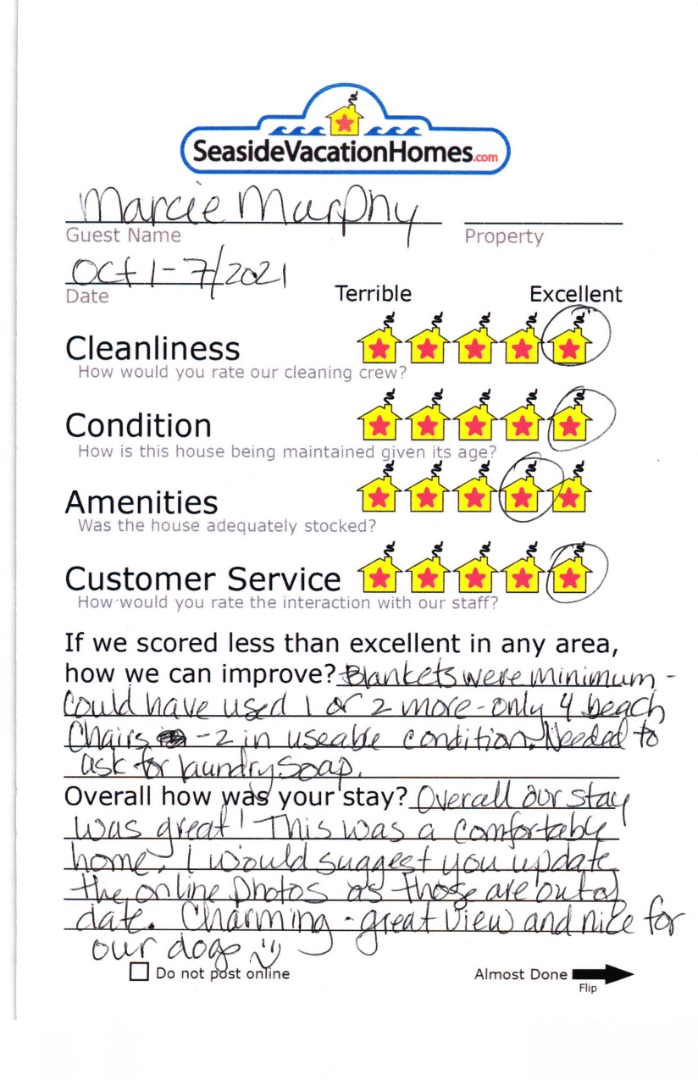 SeasideVacationHomes.com
Marcie Murphy
Guest Name Property
Oct 1-7/2021
Date Terrible Excellent
Cleanliness
How would you rate our cleaning crew?
Condition
How is this house being maintained given its age?
Amenities
Was the house adequately stocked?
Customer Service
How would you rate the interaction with our staff?
If we scored less than excellent in any area,
how we can improve? Blankets were minimum -
Could have used 1 or 2 more - only 4 beach
Chairs - 2 in useable condition. Needed to
ask for laundry soap.
Overall how was your stay? Overall our stay
was great! This was a comfortable
home. I would suggest you update
the online photos as those are out of
date. Charming - great view and nice for
our dogs
Do not post online Almost Done
Flip